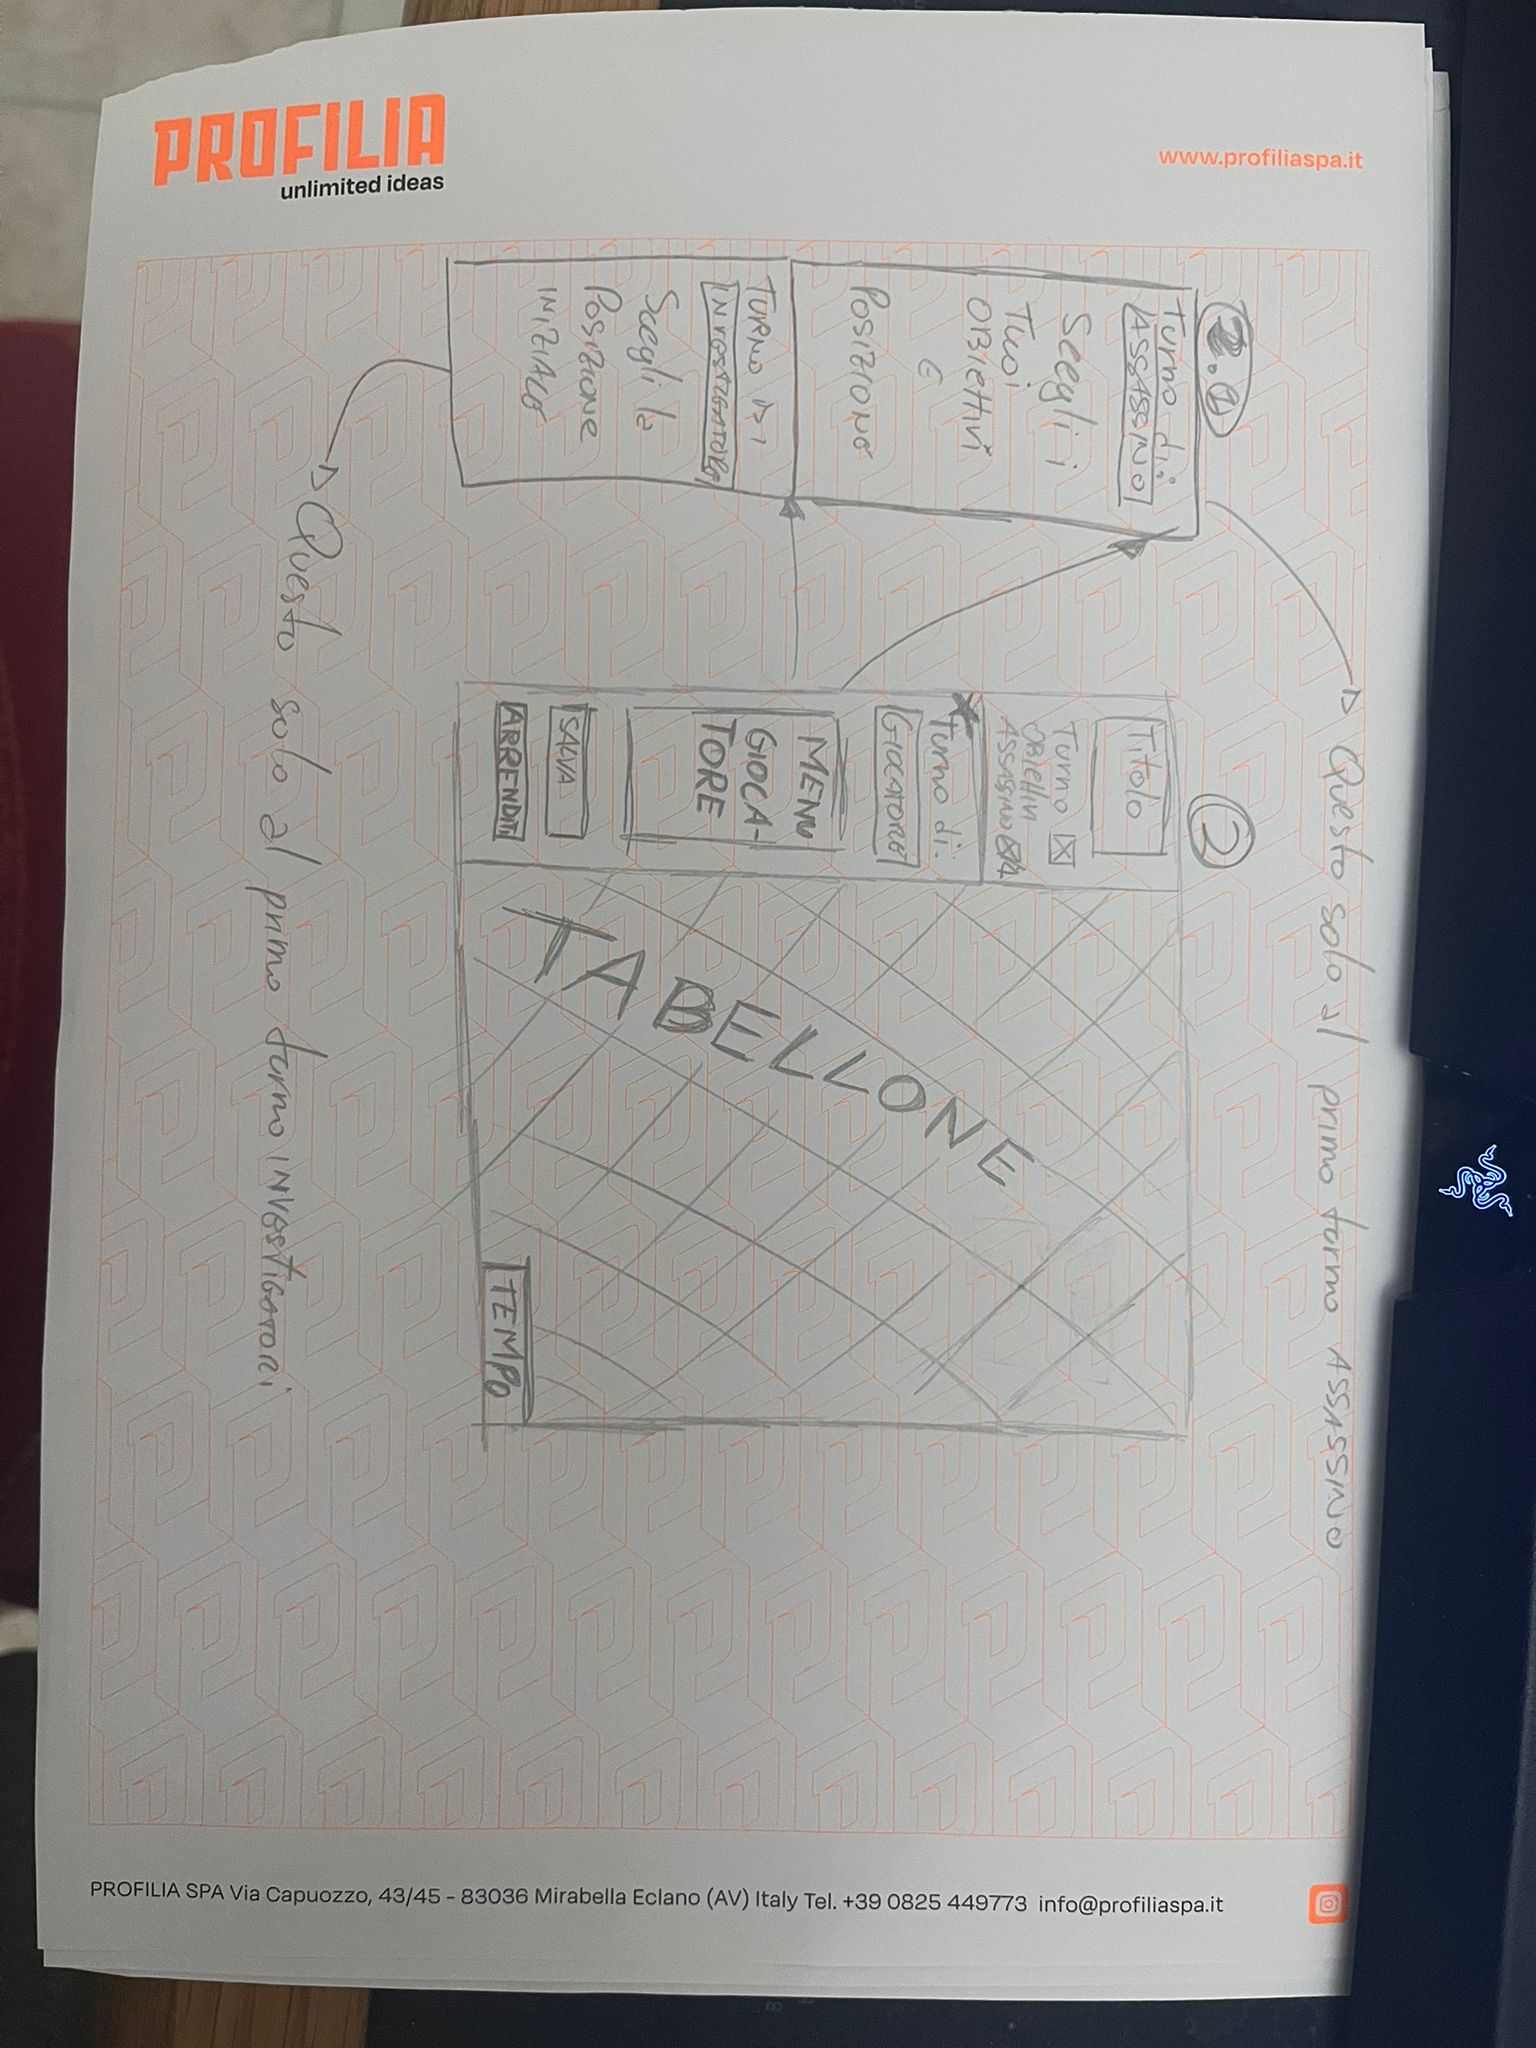 PROFILIA
unlimited ideas
www.profiliaspa.it
2.1
Turno di:
ASSASSINO
Scegli i
Tuoi
OBIETTIVI
E
POSIZIONE
TURNO DI
INVESTIGATORE
Scegli la
Posizione
INIZIALE
Questo solo al primo turno ASSASSINO
Questo solo al primo turno INVESTIGATORI
2
Titolo
Turno X
OBIETTIVI
ASSASSINO
Turno di:
GIOCATORE
MENU
GIOCA-
TORE
SALVA
ARRENDITI
TABELLONE
TEMPO
PROFILIA SPA Via Capuozzo, 43/45 - 83036 Mirabella Eclano (AV) Italy Tel. +39 0825 449773 info@profiliaspa.it